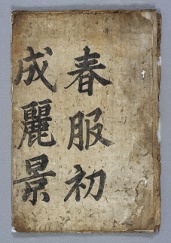 春服初
成麗景